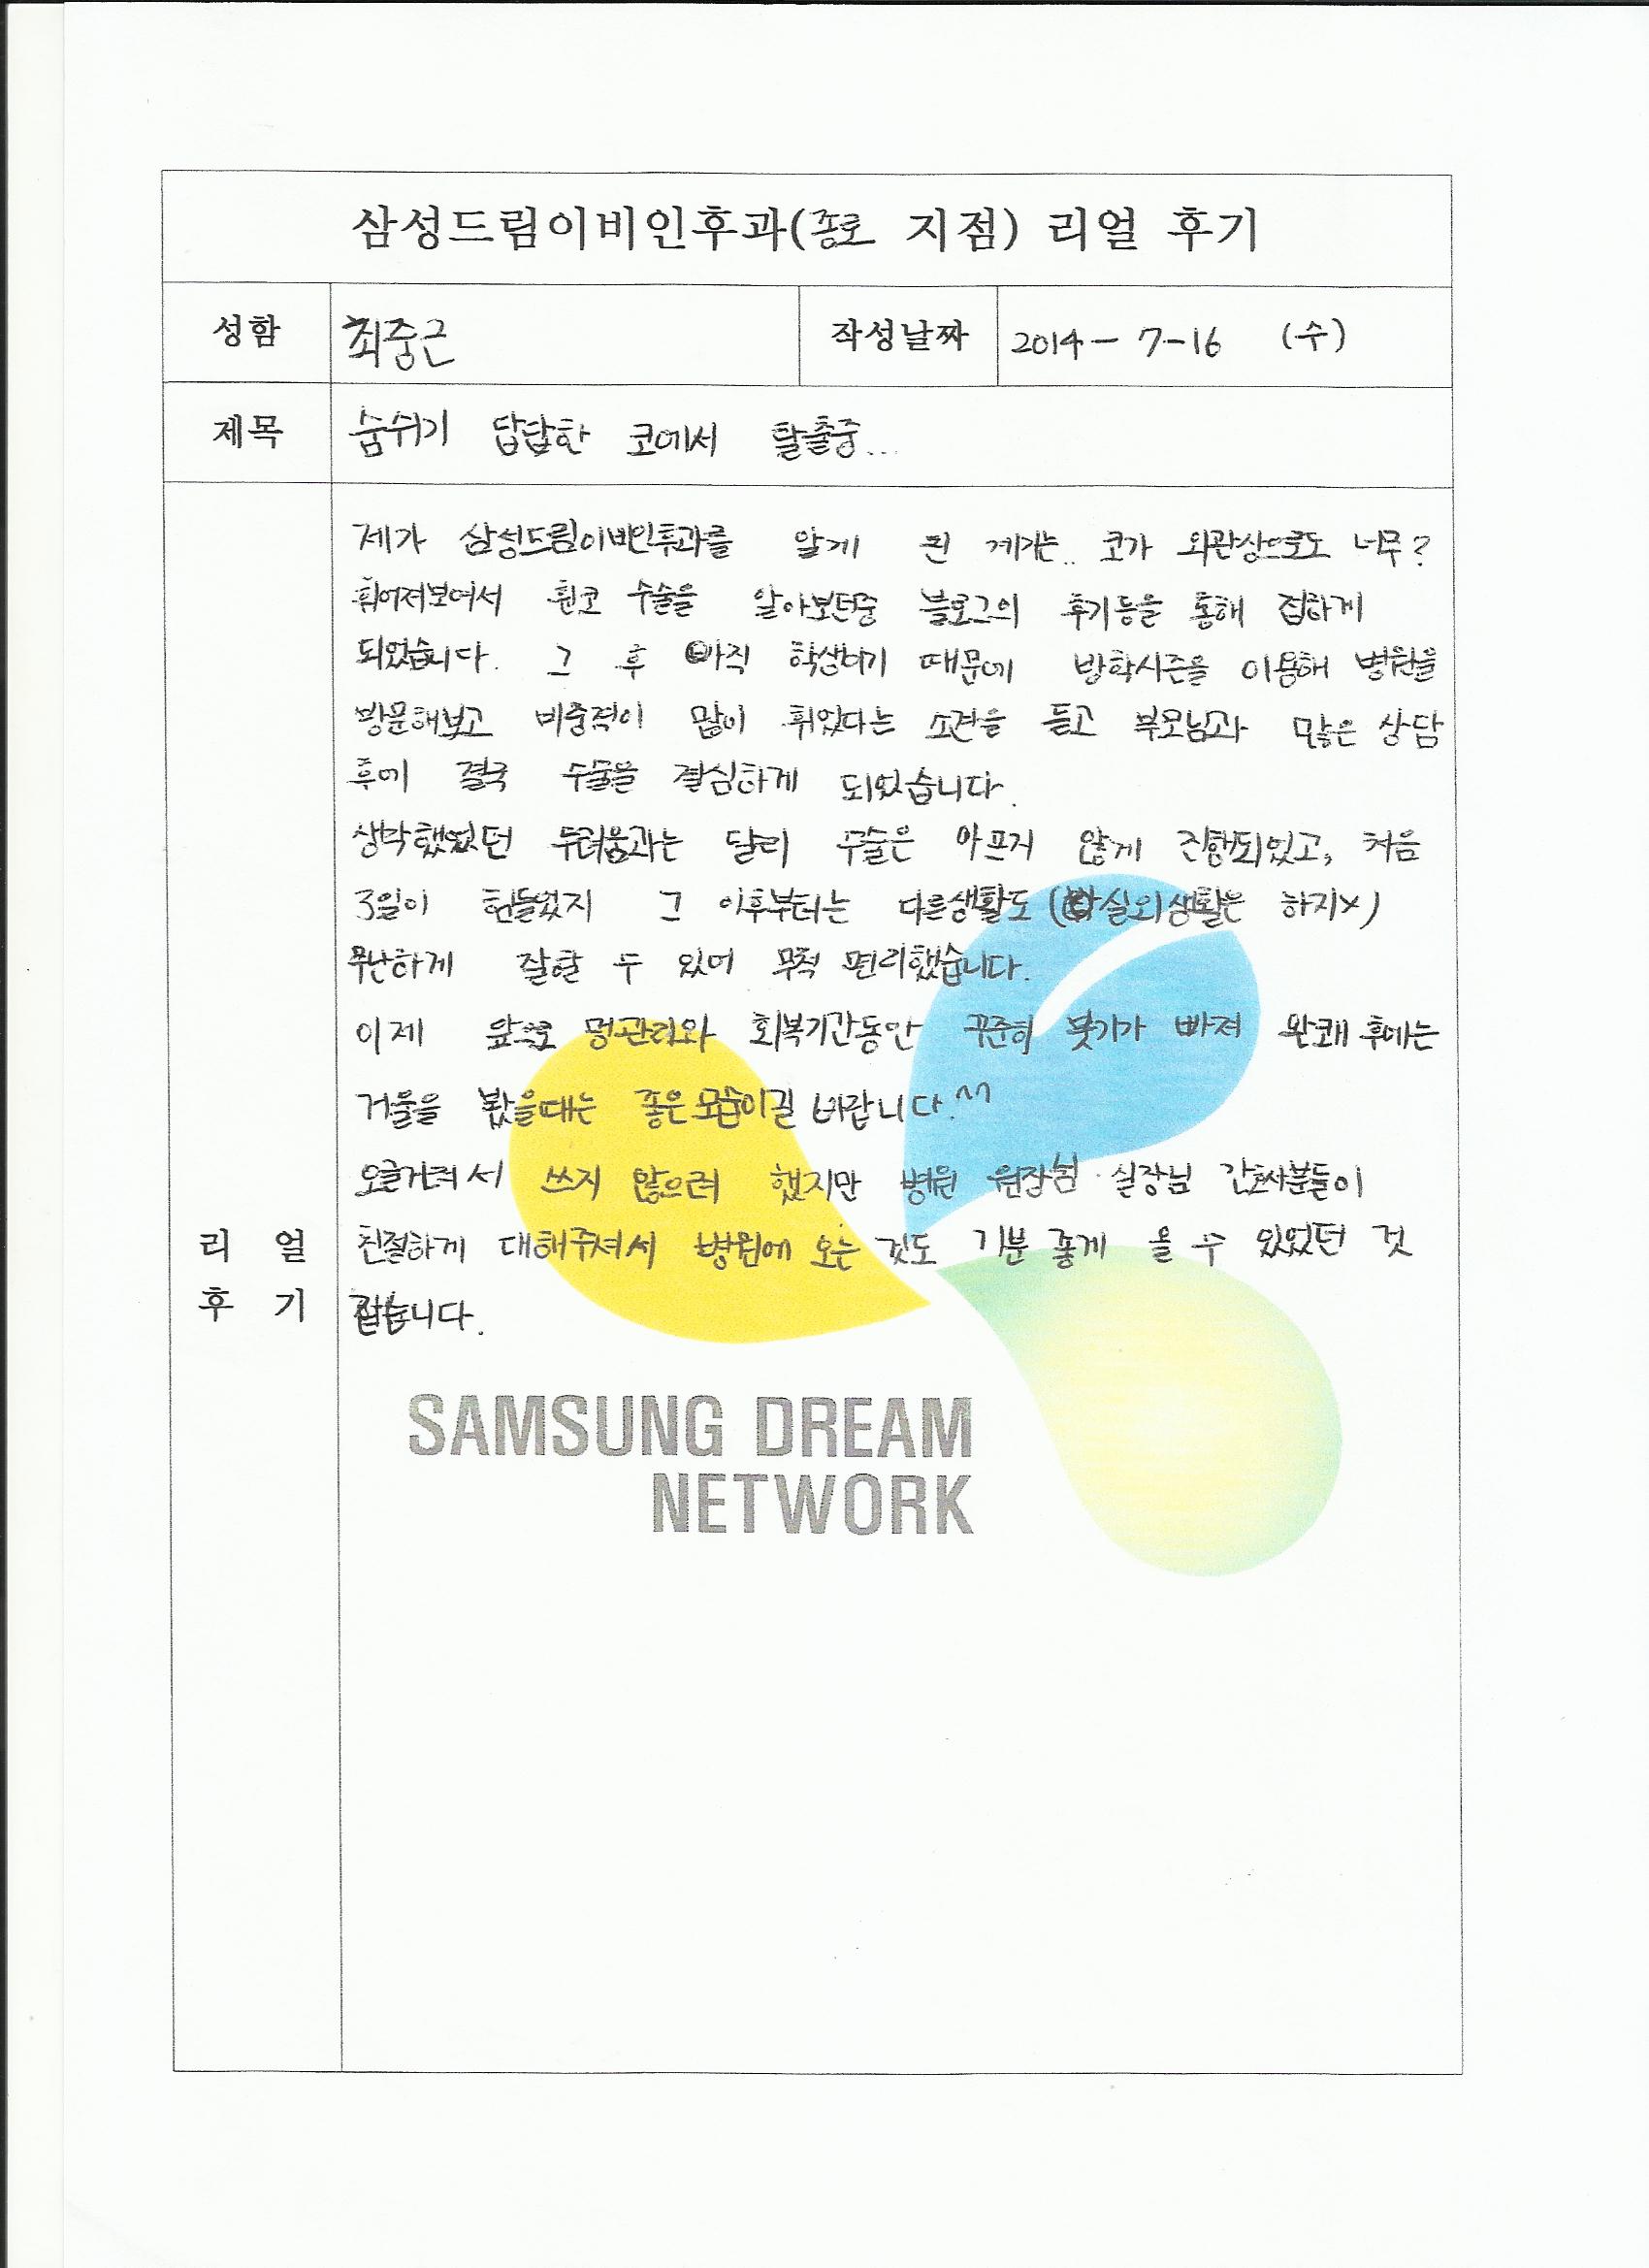 삼성드림이비인후과(종로 지점) 리얼 후기
성함 최중근 작성날짜 2014-7-16 (수)
제목 숨쉬기 답답한 코에서 탈출중...
제가 삼성드림이비인후과를 알게 된 계기는.. 코가 외관상으로도 너무?
휘어져보여서 휜코 수술을 알아보던중 블로그의 후기등을 통해 접하게
되었습니다. 그 후 아직 학생이기 때문에 방학시즌을 이용해 병원을
방문해보고 비중격이 많이 휘었다는 소견을 듣고 부모님과 많은 상담
후에 결국 수술을 결심하게 되었습니다.
생각했었던 두려움과는 달리 수술은 아프지 않게 진행되었고, 처음
3일이 힘들었지 그 이후부터는 다른생활도 (실외생활은 하지x)
무난하게 잘할 수 있어 무척 편리했습니다.
이제 앞으로 멍관리와 회복기간동안 꾸준히 붓기가 빠져 완쾌 후에는
거울을 봤을때는 좋은모습이길 바랍니다.^^
오글거려서 쓰지 않으려 했지만 병원 원장님·실장님 간호사분들이
리 얼 친절하게 대해주셔서 병원에 오는 것도 기분 좋게 올 수 있었던 것
후 기 같습니다.
SAMSUNG DREAM
NETWORK